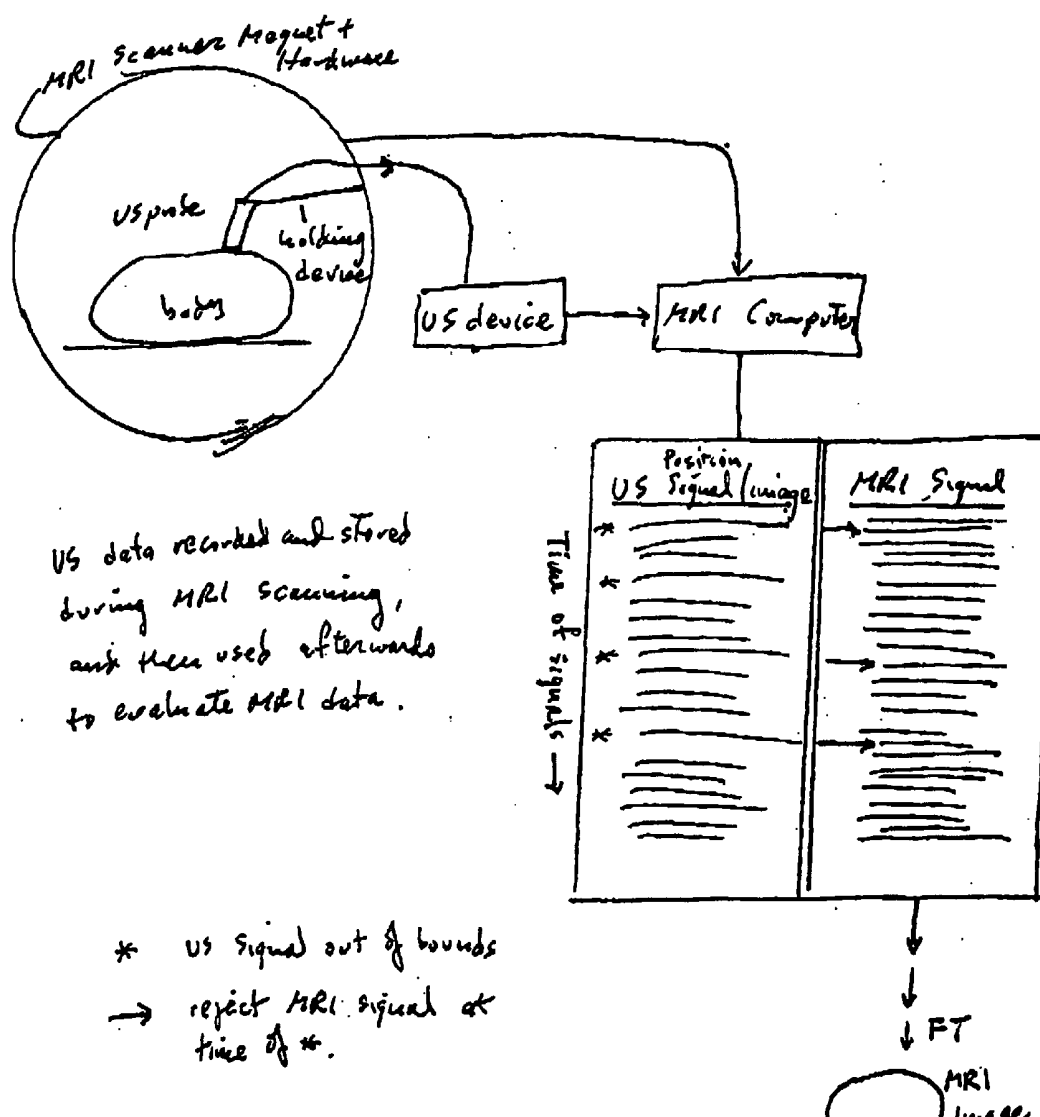 MRI Scanner Magnet +
Hardware
US probe
holding
device
body
US device
MRI Computer
Position
US Signal/image
MRI Signal
*
*
*
*
Time of signals →
US data recorded and stored
during MRI scanning,
and then used afterwards
to evaluate MRI data.
* US signal out of bounds
→ reject MRI signal at
time of *.
FT
MRI
Image